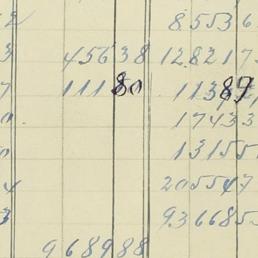 2 8553 6
3 456 38 12821 7
7 111 80 113 89
0 17433
0 13155
4 205547
3 93668 5
9689 88